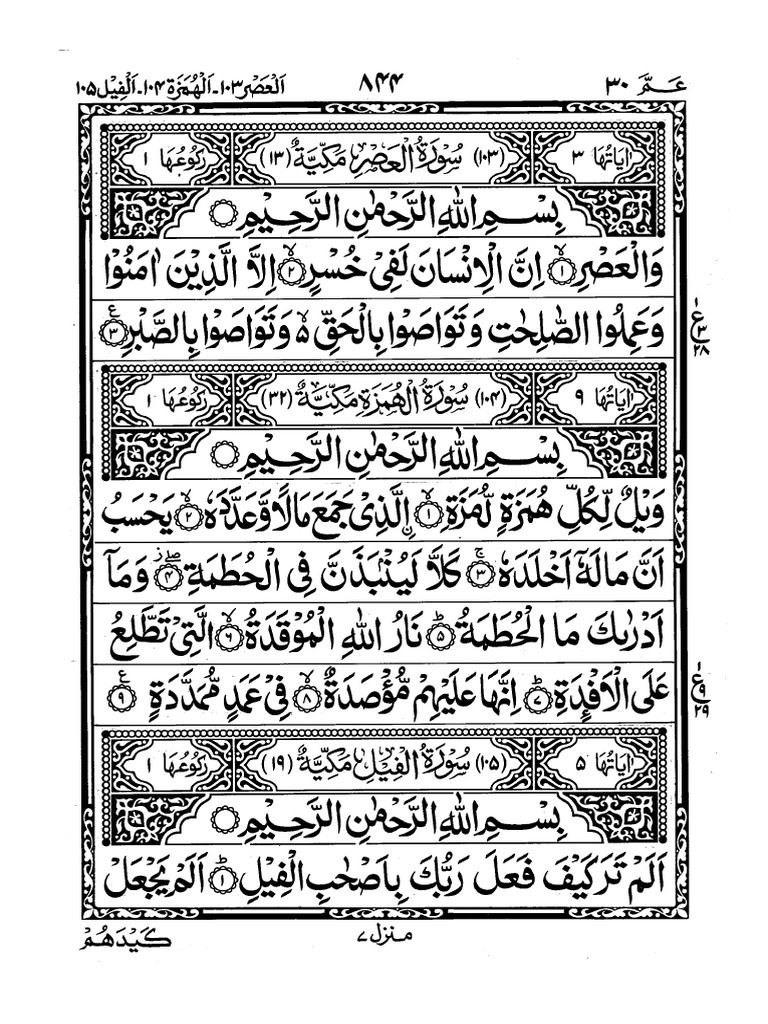 عَـمَّ ۳۰
۸۴۴
اَلْعَصْر ۱۰۳-اَلْهُمَزَة ۱۰۴-اَلْفِيْل ۱۰۵
اٰيَاتُهَا ۳ (۱۰۳) سُوْرَةُ الْعَصْرِ مَكِّيَّةٌ (۱۳) رُكُوْعُهَا ۱
بِسْمِ اللّٰهِ الرَّحْمٰنِ الرَّحِيْمِ
وَالْعَصْرِۙ۱ اِنَّ الْاِنْسَانَ لَفِيْ خُسْرٍۙ۲ اِلَّا الَّذِيْنَ اٰمَنُوْا
وَعَمِلُوا الصّٰلِحٰتِ وَتَوَاصَوْا بِالْحَقِّ ۙ۬ وَتَوَاصَوْا بِالصَّبْرِ۳ع
ع ۱ ۳ ۲۸
اٰيَاتُهَا ۹ (۱۰۴) سُوْرَةُ الْهُمَزَةِ مَكِّيَّةٌ (۳۲) رُكُوْعُهَا ۱
بِسْمِ اللّٰهِ الرَّحْمٰنِ الرَّحِيْمِ
وَيْلٌ لِّكُلِّ هُمَزَةٍ لُّمَزَةِۙ۱ اِۨلَّذِيْ جَمَعَ مَالًا وَّعَدَّدَهٗۙ۲ يَحْسَبُ
اَنَّ مَالَهٗٓ اَخْلَدَهٗۚ۳ كَلَّا لَيُنْۢبَذَنَّ فِي الْحُطَمَةِۖز۴ وَمَآ
اَدْرٰىكَ مَا الْحُطَمَةُؕ۵ نَارُ اللّٰهِ الْمُوْقَدَةُۙ۶ الَّتِيْ تَطَّلِعُ
عَلَى الْاَفْـِٕدَةِؕ۷ اِنَّهَا عَلَيْهِمْ مُّؤْصَدَةٌۙ۸ فِيْ عَمَدٍ مُّمَدَّدَةٍ۹ع
ع ۱ ۹ ۲۹
اٰيَاتُهَا ۵ (۱۰۵) سُوْرَةُ الْفِيْلِ مَكِّيَّةٌ (۱۹) رُكُوْعُهَا ۱
بِسْمِ اللّٰهِ الرَّحْمٰنِ الرَّحِيْمِ
اَلَمْ تَرَ كَيْفَ فَعَلَ رَبُّكَ بِاَصْحٰبِ الْفِيْلِؕ۱ اَلَمْ يَجْعَلْ
منزل ۷
كَيْدَهُمْ